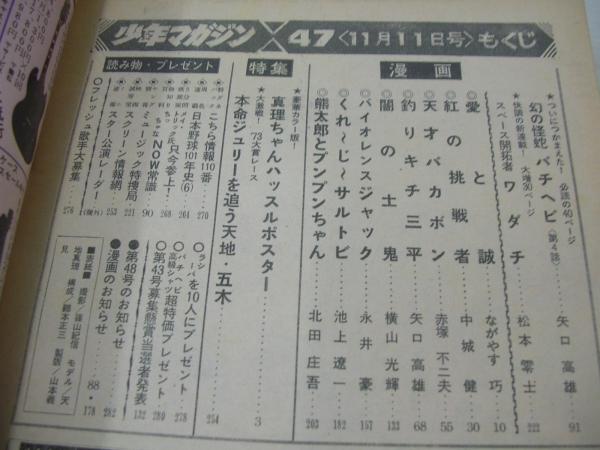 少年マガジン 47〈11月11日号〉もくじ
漫画
★ついにつかまえた! 必読の40ページ
幻の怪蛇 バチヘビ〈第4話〉 矢口高雄 91
★快調の新連載! 大増30ページ
スペース開拓者 ワダチ 松本零士 222
愛と誠 ながやす巧 10
紅の挑戦者 中城健 30
天才バカボン 赤塚不二夫 55
釣りキチ三平 矢口高雄 68
闇の土鬼 横山光輝 133
バイオレンスジャック 永井豪 157
くれ〜じ〜サルトビ 池上遼一 182
熊太郎とブンブンちゃん 北田庄吾 203
特集
★豪華カラー版!
真理ちゃんハッスルポスター 3
★大激戦! '73大賞レース
本命ジュリーを追う天地・五木 254
読み物・プレゼント
こちら情報110番 270
日本野球101年史(6) 221
只今参上! 268
NOW常識 264
ミュージック特捜局 90
スクリーン情報網 221
スター公演レーダー 253
フレッシュ歌手大募集 276
を10人にプレゼント
超特価プレゼント 278
第43号募集懸賞当選者発表 280
●第48号のお知らせ 132
●漫画のお知らせ 282
88・178
■表紙■ 撮影/篠山紀信 モデル/天
地真理 構成/鶴本正三 製版/山本義
見